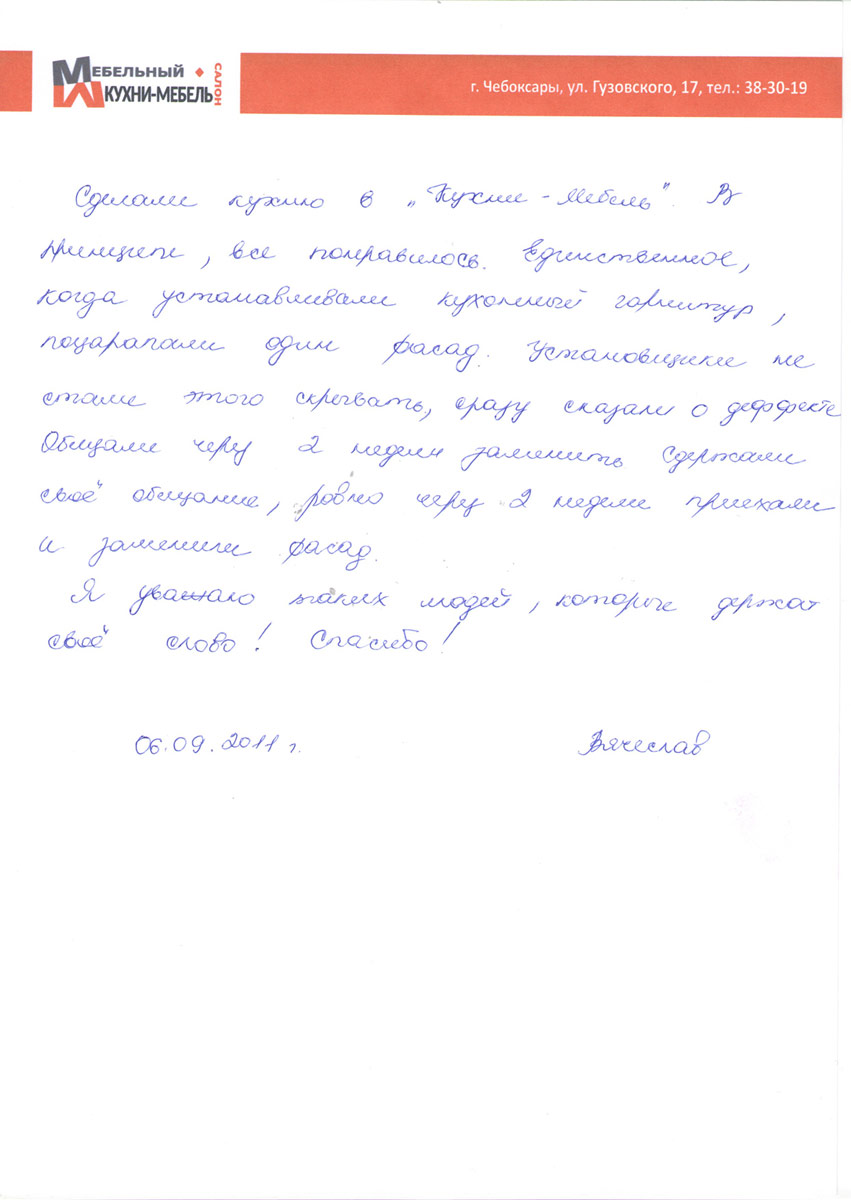 МЕБЕЛЬНЫЙ САЛОН
КУХНИ-МЕБЕЛЬ
г. Чебоксары, ул. Гузовского, 17, тел.: 38-30-19
Сделали кухню в „Кухни-Мебель". В
принципе, все понравилось. Единственное,
когда устанавливали кухонный гарнитур,
поцарапали один фасад. Установщики не
стали этого скрывать, сразу сказали о деффекте
Обещали через 2 недели заменить Сдержали
своё обещание, ровно через 2 недели приехали
и заменили фасад.
Я уважаю таких людей, которые держат
своё слово! Спасибо!
06.09.2011 г. Вячеслав